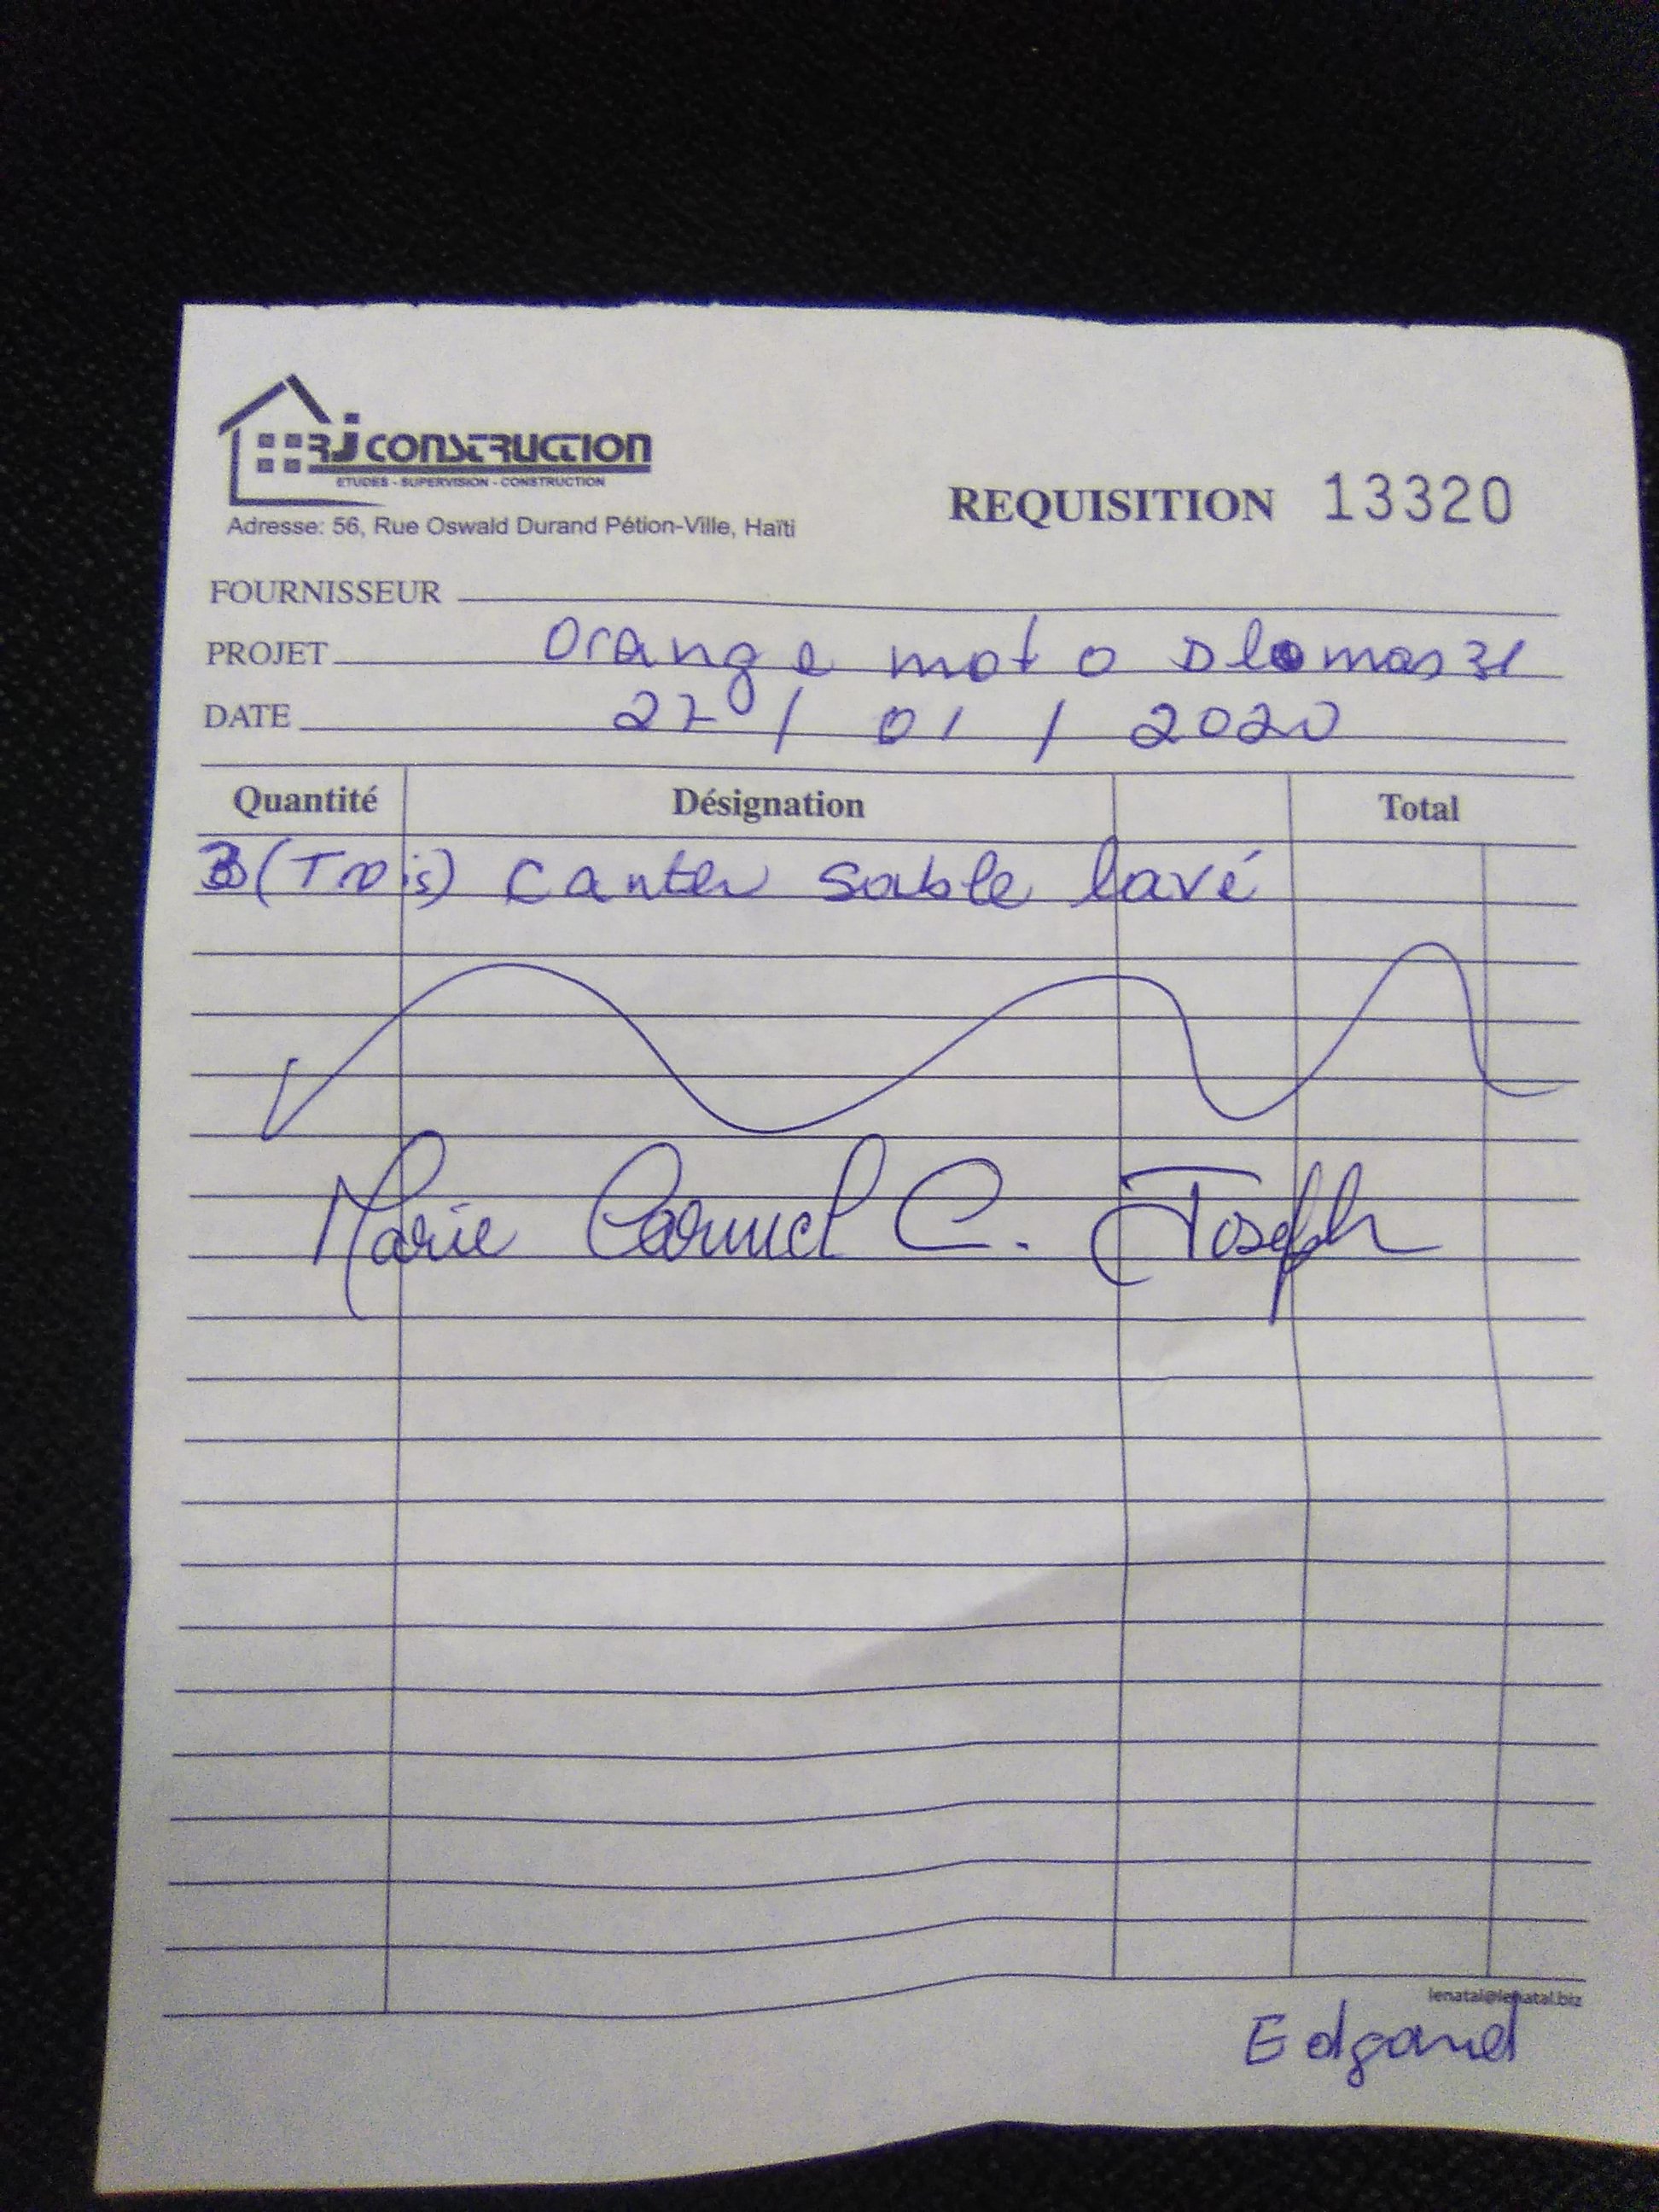 RJ CONSTRUCTION
ETUDES - SUPERVISION - CONSTRUCTION
Adresse: 56, Rue Oswald Durand Pétion-Ville, Haïti
REQUISITION 13320
FOURNISSEUR
PROJET Orange moto Delmas 31
DATE 27/01/2020
Quantité Désignation Total
3 (Trois) canter sable lavé
Marie Carmel C. Joseph
lenatal@lenatal.biz
Edgard